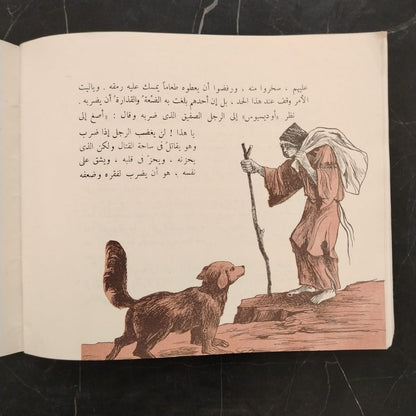 عليهم ، سخروا منه ، ورفضوا أن يعطوه طعاماً يمسك عليه رمقه . وياليت
الأمر وقف عند هذا الحد ، بل إن أحدهم بلغت به الضّعة والقذارة أن يضربه .
نظر «أوديسيوس» إلى الرجل الصفيق الذى ضربه وقال : «أصغ إلى
يا هذا ! لن يغضب الرجل إذا ضرب
وهو يقاتل فى ساحة القتال ولكن الذى
يحزنه ، ويحزّ فى قلبه ، ويشق على
نفسه ، هو أن يضرب لفقره وضعفه